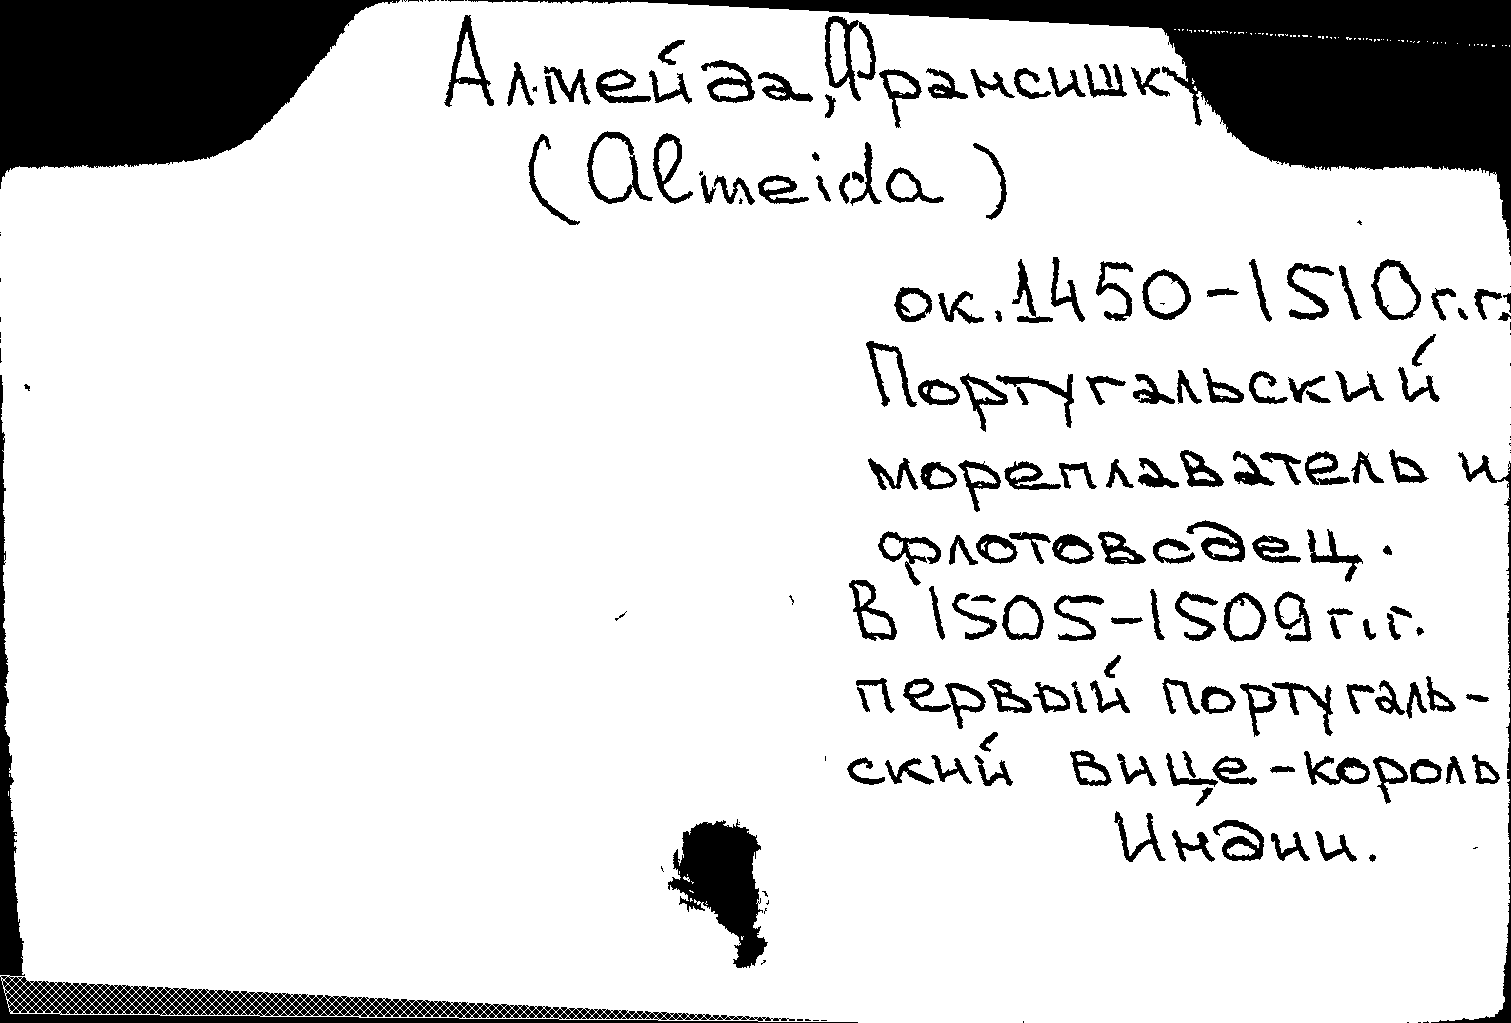 Алмейда, Франсишку
(Almeida)
ок. 1450-1510 г.г.
Португальский
мореплаватель и
флотоводец.
В 1505-1509 г.г.
первый португаль-
ский вице-король
Индии.